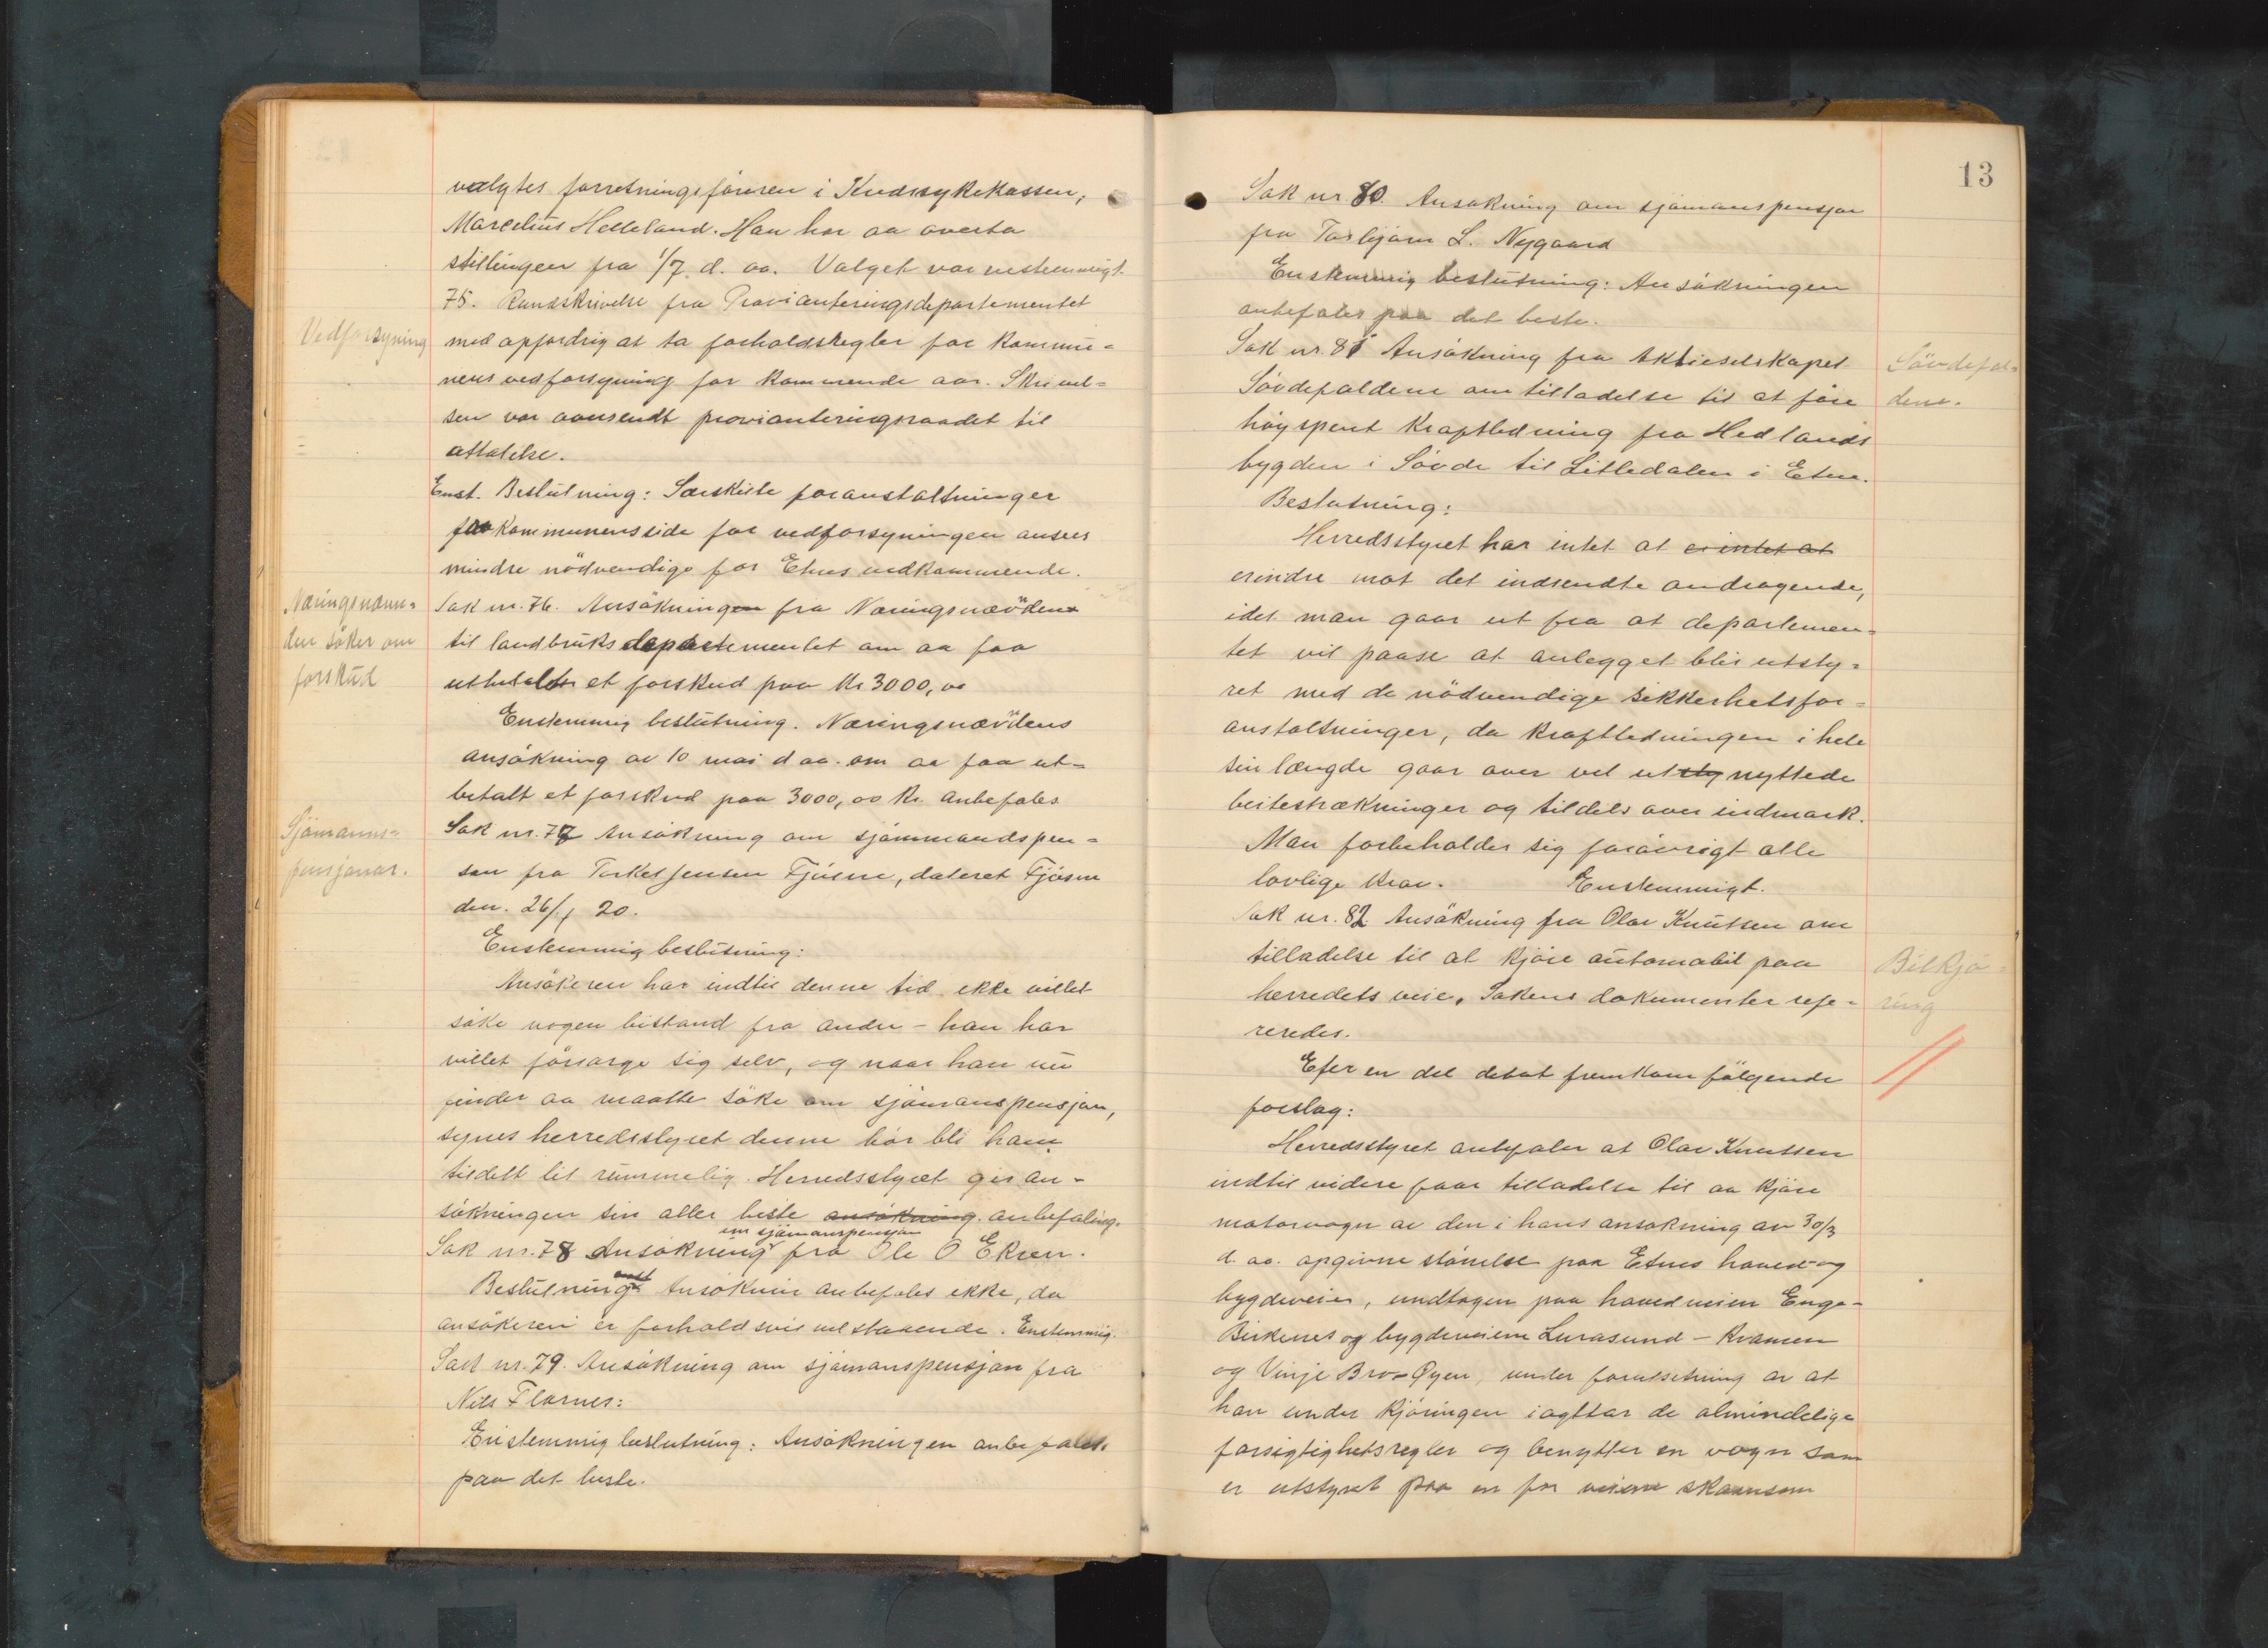 valgtes forretningsföreren i Kredssykekassen,
Marcelius Helleland. Han har aa overta
stillingen fra 1/7 d. aa. Valget var enstemmigt.
75. Rundskrivelse fra Provianteringsdepartementet
Vedforsyning
med opfordrig at ta forholdsregler for kommu-
nens vedforsyning for kommende aar. Skrivel-
sen var oversendt provianteringsraadet til
uttalelse.
Enst. Beslutning: Særskilte foranstaltninger
fra kommunens side for vedforsyningen ansees
mindre nödvendige for Etnes vedkommende.
Næringsnævn-
den söker om
forskud
Sak nr. 76. Ansökningen fra Næringsnævnden
til landbruksdepartementet om aa faa
utbetalt et forskud paa Kr 3000,00
Enstemmig beslutning. Næringsnævndens
ansökning av 10 mai d aa. om aa faa ut-
betalt et forskud paa 3000,00 kr. anbefales
Sjömanns-
pensjonar.
Sak nr. 77 Ansökning om sjömmandspen-
son fra Torkel Jensen Fjösne, dateret Fjösne
den. 26/1 20.
Enstemmig beslutning:
Ansökeren har indtil denne tid ikke villet
söke nogen bistand fra andre - han har
villet försörge sig selv, og naar han nu
finder aa maatte söke om sjömanspensjon,
synes herredsstyret denne bör bli ham
tildelt lit rummelig. Herredsstyret gir an-
sökningen sin aller beste ansökning anbefaling.
om sjömanspensjon
Sak nr. 78 Ansökning fra Ole O Ekren.
Beslutning Ansöknin anbefales ikke, da
ansökeren er forholdsvis velstaaende. Enstemmig.
Sak nr. 79. Ansökning om sjömanspensjon fra
Nils Flornes:
Enstemmig beslutning: Ansökningen anbefales
paa det beste.
13
Sak nr. 80. Ansökning om sjömanspensjon
fra Torbjörn L. Nygaard
Enstemmig beslutning: Ansökningen
anbefales paa det beste.
Sak nr. 81 Ansökning fra Aktieselskapet
Sövdefal-
dene.
Sövdefaldene om tilladelse til at före
höyspent kraftledning fra Hedlands
bygden i Sövde til Litledalen i Etne.
Beslutning:
Herredsstyret har intet at er intet at
erindre mot det indsendte andragende,
idet man gaar ut fra at departemen-
tet vil paase at anlegget blir utsty-
ret med de nödvendige sikkerhetsfor-
anstaltninger, da kraftledningen i hele
sin længde gaar over vel utsty nyttede
beitestrækninger og tildels over indmark.
Man forbeholder sig foröirigt alle
lovlige krav. Enstemmigt.
Sak nr. 82 Ansökning fra Olav Knutsen om
tilladelse til at kjöre automobil paa
Bilkjö-
ring
herredets veie. Sakens dokumenter refe-
reredes.
Efer en del debat fremkom fölgende
forslag:
Herredsstyret anbefaler at Olav Knutsen
indtil videre faar tilladelse til aa kjöre
motorvogn av den i hans ansökning av 30/3
d. aa. opgivne störrelse paa Etnes hoved- og
bygdeveier, undtagen paa hovedveien Enge-
Birkenes og bygdeveiene Lurasund - Kvamen
og Vinje Bro - Øyen, under forutsetning av at
han under kjöringen iagttar de almindelige
forsigtighetsregler og benytter en vogn som
er utstyret paa en for veiene skaansom